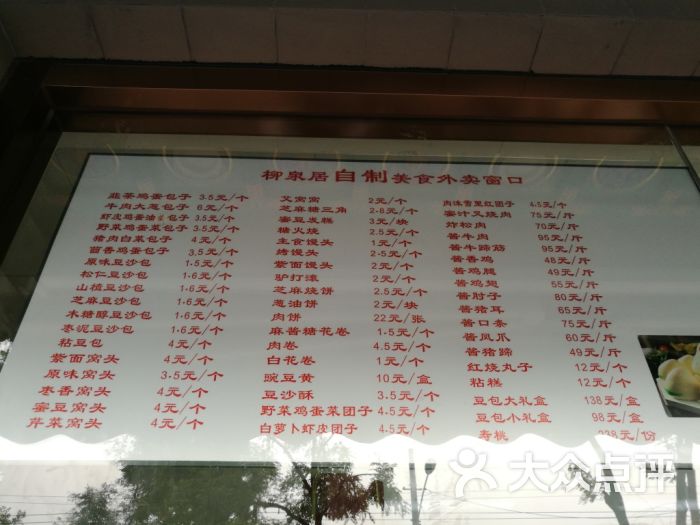 柳泉居自制美食外卖窗口
韭菜鸡蛋包子 3.5元/个
牛肉大葱包子 6元/个
虾皮鸡蛋油菜包子 3.5元/个
野菜鸡蛋菜包子 3.5元/个
猪肉白菜包子 4元/个
茴香鸡蛋包子 3.5元/个
原味豆沙包 1.5元/个
松仁豆沙包 1.6元/个
山楂豆沙包 1.6元/个
芝麻豆沙包 1.6元/个
木糖醇豆沙包 1.6元/个
枣泥豆沙包 1.6元/个
粘豆包 4元/个
紫面窝头 4元/个
原味窝头 3.5元/个
枣香窝头 4元/个
蜜豆窝头 4元/个
芹菜窝头 4元/个
艾窝窝 2元/个
芝麻糖三角 2.8元/个
蜜豆发糕 3元/块
糖火烧 2.5元/个
主食馒头 1元/个
烤馒头 2.5元/个
紫面馒头 2元/个
驴打滚 2元/个
芝麻烧饼 2.5元/个
葱油饼 2元/块
肉饼 22元/张
麻酱糖花卷 1.5元/个
肉卷 4.5元/个
白花卷 1元/个
豌豆黄 10元/盒
豆沙酥 3.5元/个
野菜鸡蛋菜团子 4.5元/个
白萝卜虾皮团子 4.5元/个
肉沫雪里红团子 4.5元/个
蜜汁叉烧肉 75元/斤
炸松肉 70元/斤
酱牛肉 95元/斤
酱牛蹄筋 95元/斤
酱香鸡 48元/斤
酱鸡腿 49元/斤
酱鸡翅 55元/斤
酱肘子 80元/斤
酱猪耳 65元/斤
酱口条 75元/斤
酱凤爪 60元/斤
酱猪蹄 49元/斤
红烧丸子 12元/个
粘糕 12元/个
豆包大礼盒 138元/盒
豆包小礼盒 98元/盒
寿桃 238元/份
大众点评